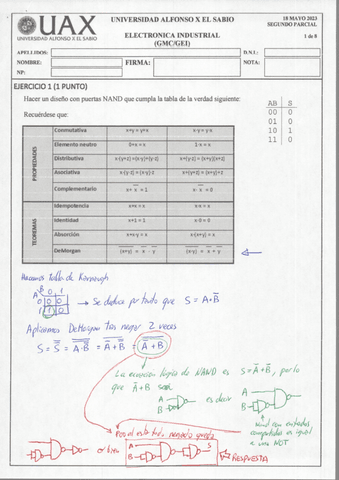 UAX
UNIVERSIDAD ALFONSO X EL SABIO
UNIVERSIDAD ALFONSO X EL SABIO
ELECTRONICA INDUSTRIAL
(GMC/GEI)
18 MAYO 2023
SEGUNDO PARCIAL
1 de 8
APELLIDOS:
D.N.I.:
NOMBRE:
FIRMA:
NOTA:
NP:
EJERCICIO 1 (1 PUNTO)
Hacer un diseño con puertas NAND que cumpla la tabla de la verdad siguiente:
Recuérdese que:
AB S
00 0
01 0
10 1
11 0
PROPIEDADES
Conmutativa x+y = y+x x·y = y·x
Elemento neutro 0+x = x 1·x = x
Distributiva x·(y+z) = (x·y)+(x·z) x+(y·z) = (x+y)(x+z)
Asociativa x·(y·z) = (x·y)·z x+(y+z) = (x+y)+z
Complementario x+x̅ = 1 x·x̅ = 0
TEOREMAS
Idempotencia x+x = x x·x = x
Identidad x+1 = 1 x·0 = 0
Absorción x+x·y = x x·(x+y) = x
DeMorgan
Hacemos tabla de Karnaugh
A B 0 1
0 0 0
1 1 0
→ Se deduce por tanto que S = A·B̅
Aplicamos DeMorgan tras negar 2 veces
La ecuacion logica de NAND es S = A̅+B̅, por lo
que A̅+B será
A
B
es decir
A
B
Nand con entradas
Por el estado negado queda
A
B
S
o bien
RESPUESTA